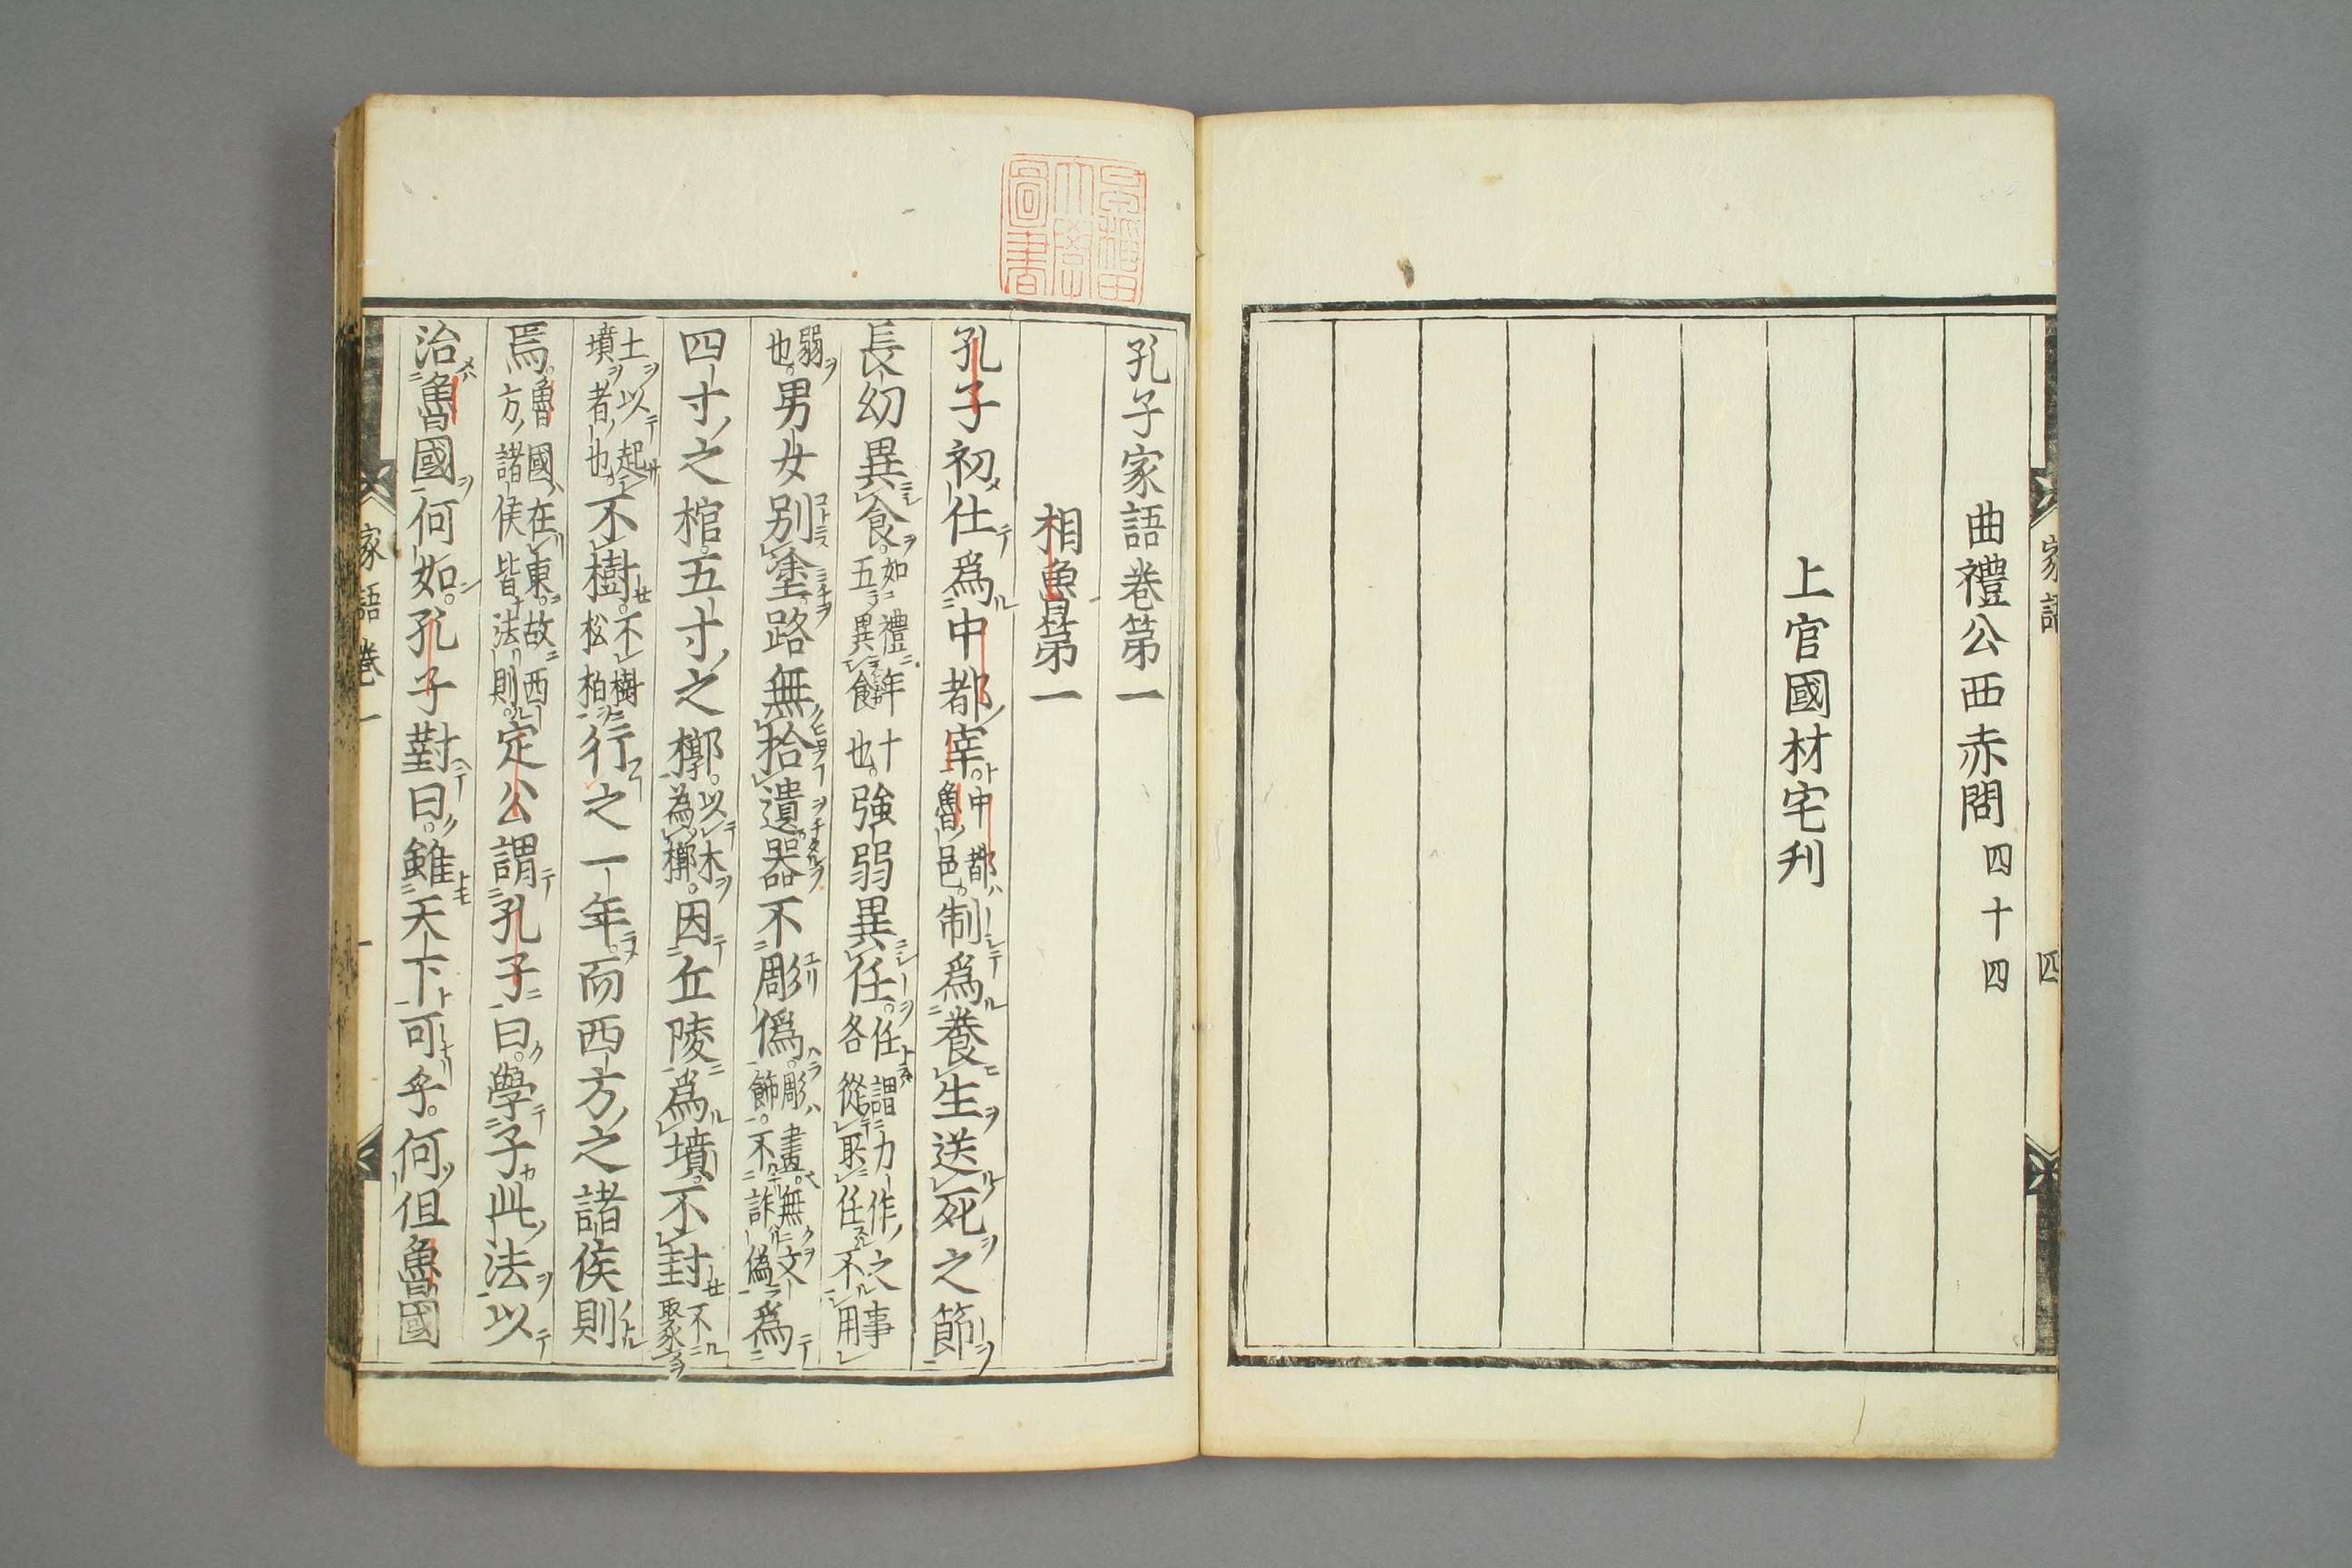 曲禮公西赤問四十四
上官國材宅刋
家語
四
早稲田
大學
圖書
孔子家語巻第一
相魯第一
孔子初仕爲中都宰。中都魯邑。制爲養生送死之節
長幼異食。如禮年十五異餼也。強弱異任。任謂力作之事各從所任不用
弱也。男女别塗路無拾遺器不彫僞。彫畫。無文飾。不詐僞爲
四寸之棺。五寸之槨。以木為槨。因丘陵爲墳。不封不聚
土以起墳者也。不樹。不樹松柏行之一年。而西方之諸侯則
焉。魯國在東。故西方諸侯皆法則。定公謂孔子曰。學子此法以
治魯國何如。孔子對曰。雖天下可乎。何但魯國
家語巻一
一